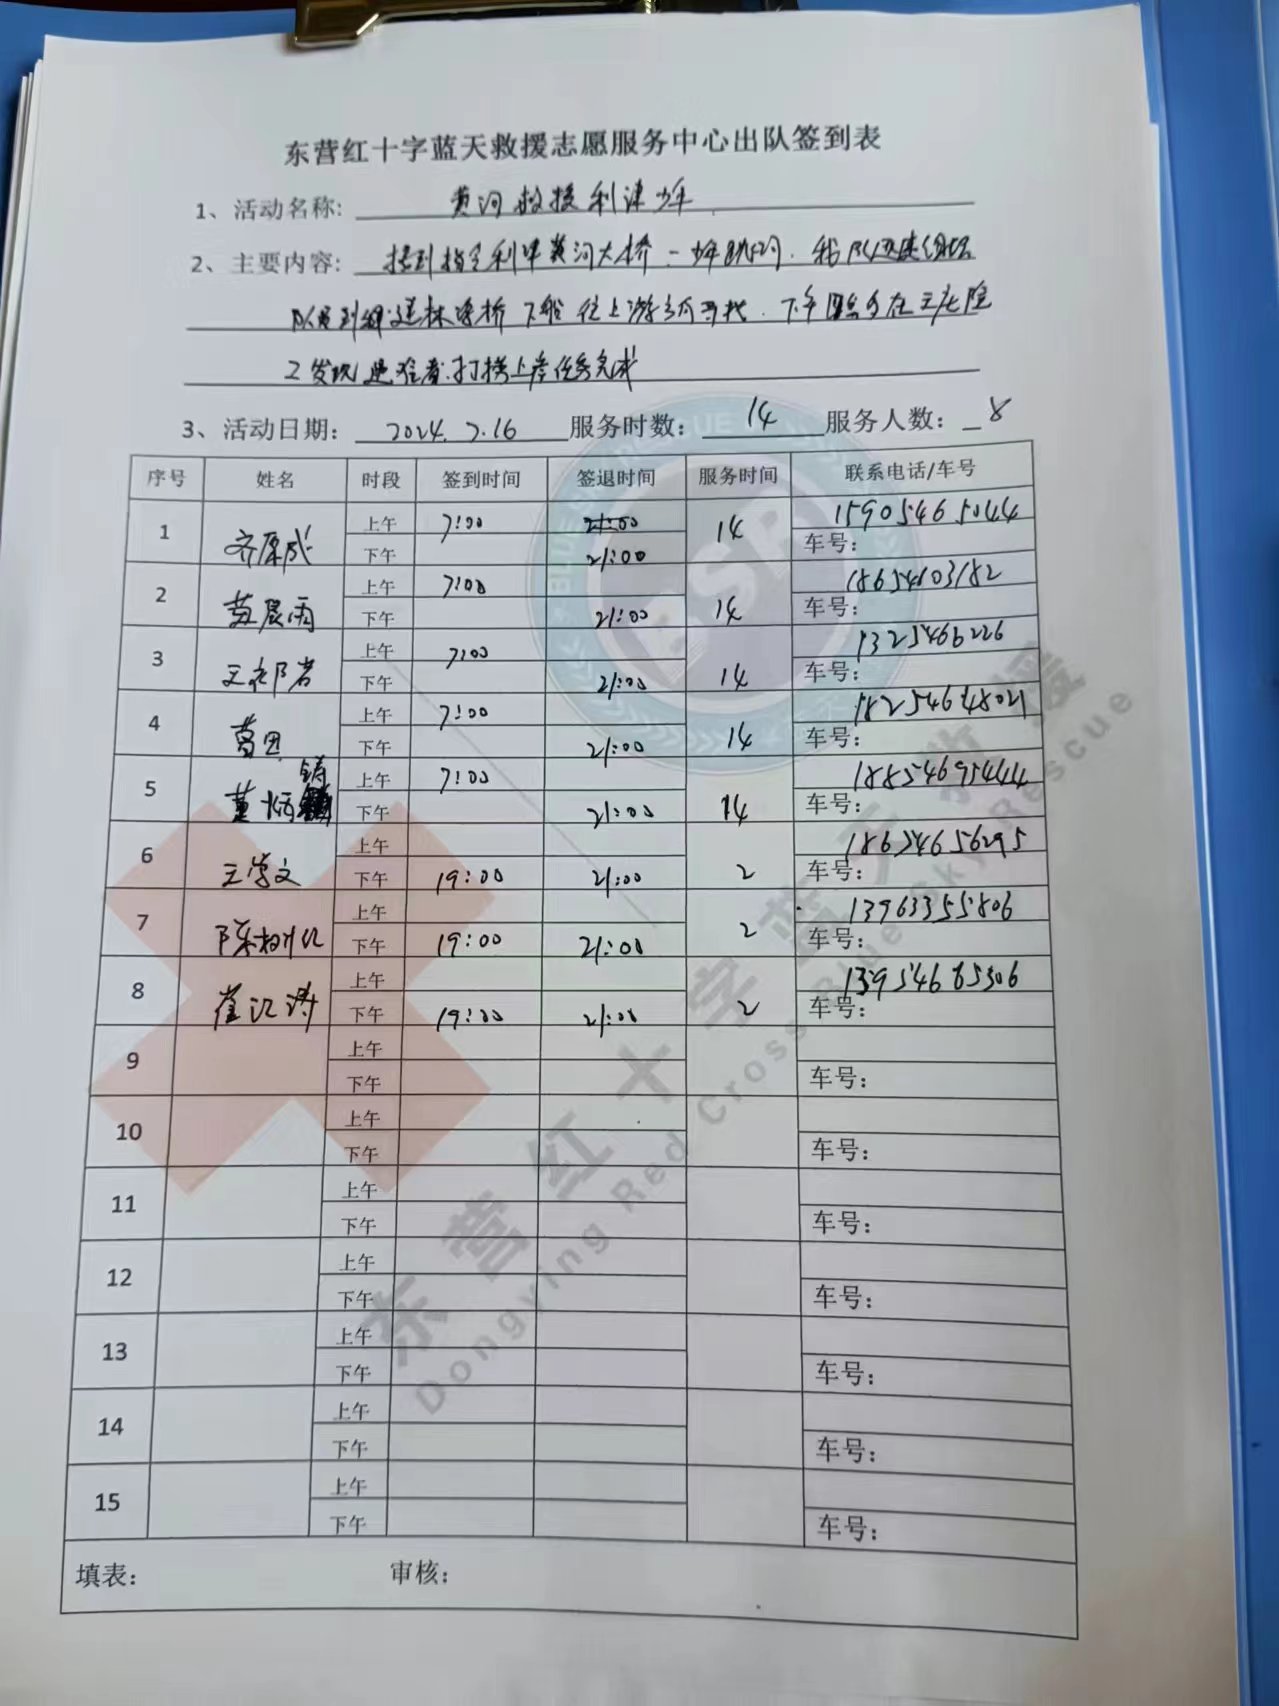 东营红十字蓝天救援志愿服务中心出队签到表
1、活动名称: 黄河救援利津少年
2、主要内容: 接到指令利津黄河大桥一少年跳河.我队迅速组织
队员到 桥下船往上游 寻找.下午 在王庄险
工发现遇难者.打捞上岸任务完成
3、活动日期: 2024.7.16 服务时数: 14 服务人数: 8
序号 姓名 时段 签到时间 签退时间 服务时间 联系电话/车号
1 齐原成 上午 7:00 21:00 14 15905465044
下午 21:00 车号:
2 黄晨雨 上午 7:00 14 18654603182
下午 21:00 车号:
3 上午 7:00 14 1325466226
下午 21:00 车号:
4 葛田 上午 7:00 14 18254648021
下午 21:00 车号:
5 董炳铸 上午 7:00 14 18854695444
下午 21:00 车号:
6 王学文 上午 2 18654656295
下午 19:00 21:00 车号:
7 陈树 上午 2 13963355806
下午 19:00 21:00 车号:
8 崔 涛 上午 2 13954685306
下午 19:00 21:00 车号:
9 上午
下午 车号:
10 上午
下午 车号:
11 上午
下午 车号:
12 上午
下午 车号:
13 上午
下午 车号:
14 上午
下午 车号:
15 上午
下午 车号:
填表: 审核:
东营红十字蓝天救援
Dongying Red Cross Blue Sky Rescue